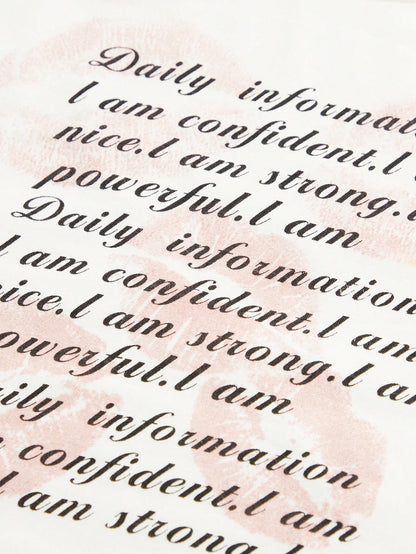 Daily informati
I am confident.I
nice.I am strong.I
powerful.I am
Daily information
I am confident.I am
nice.I am strong.I am
owerful.I am
aily information
confident.I am
I am strong.I am